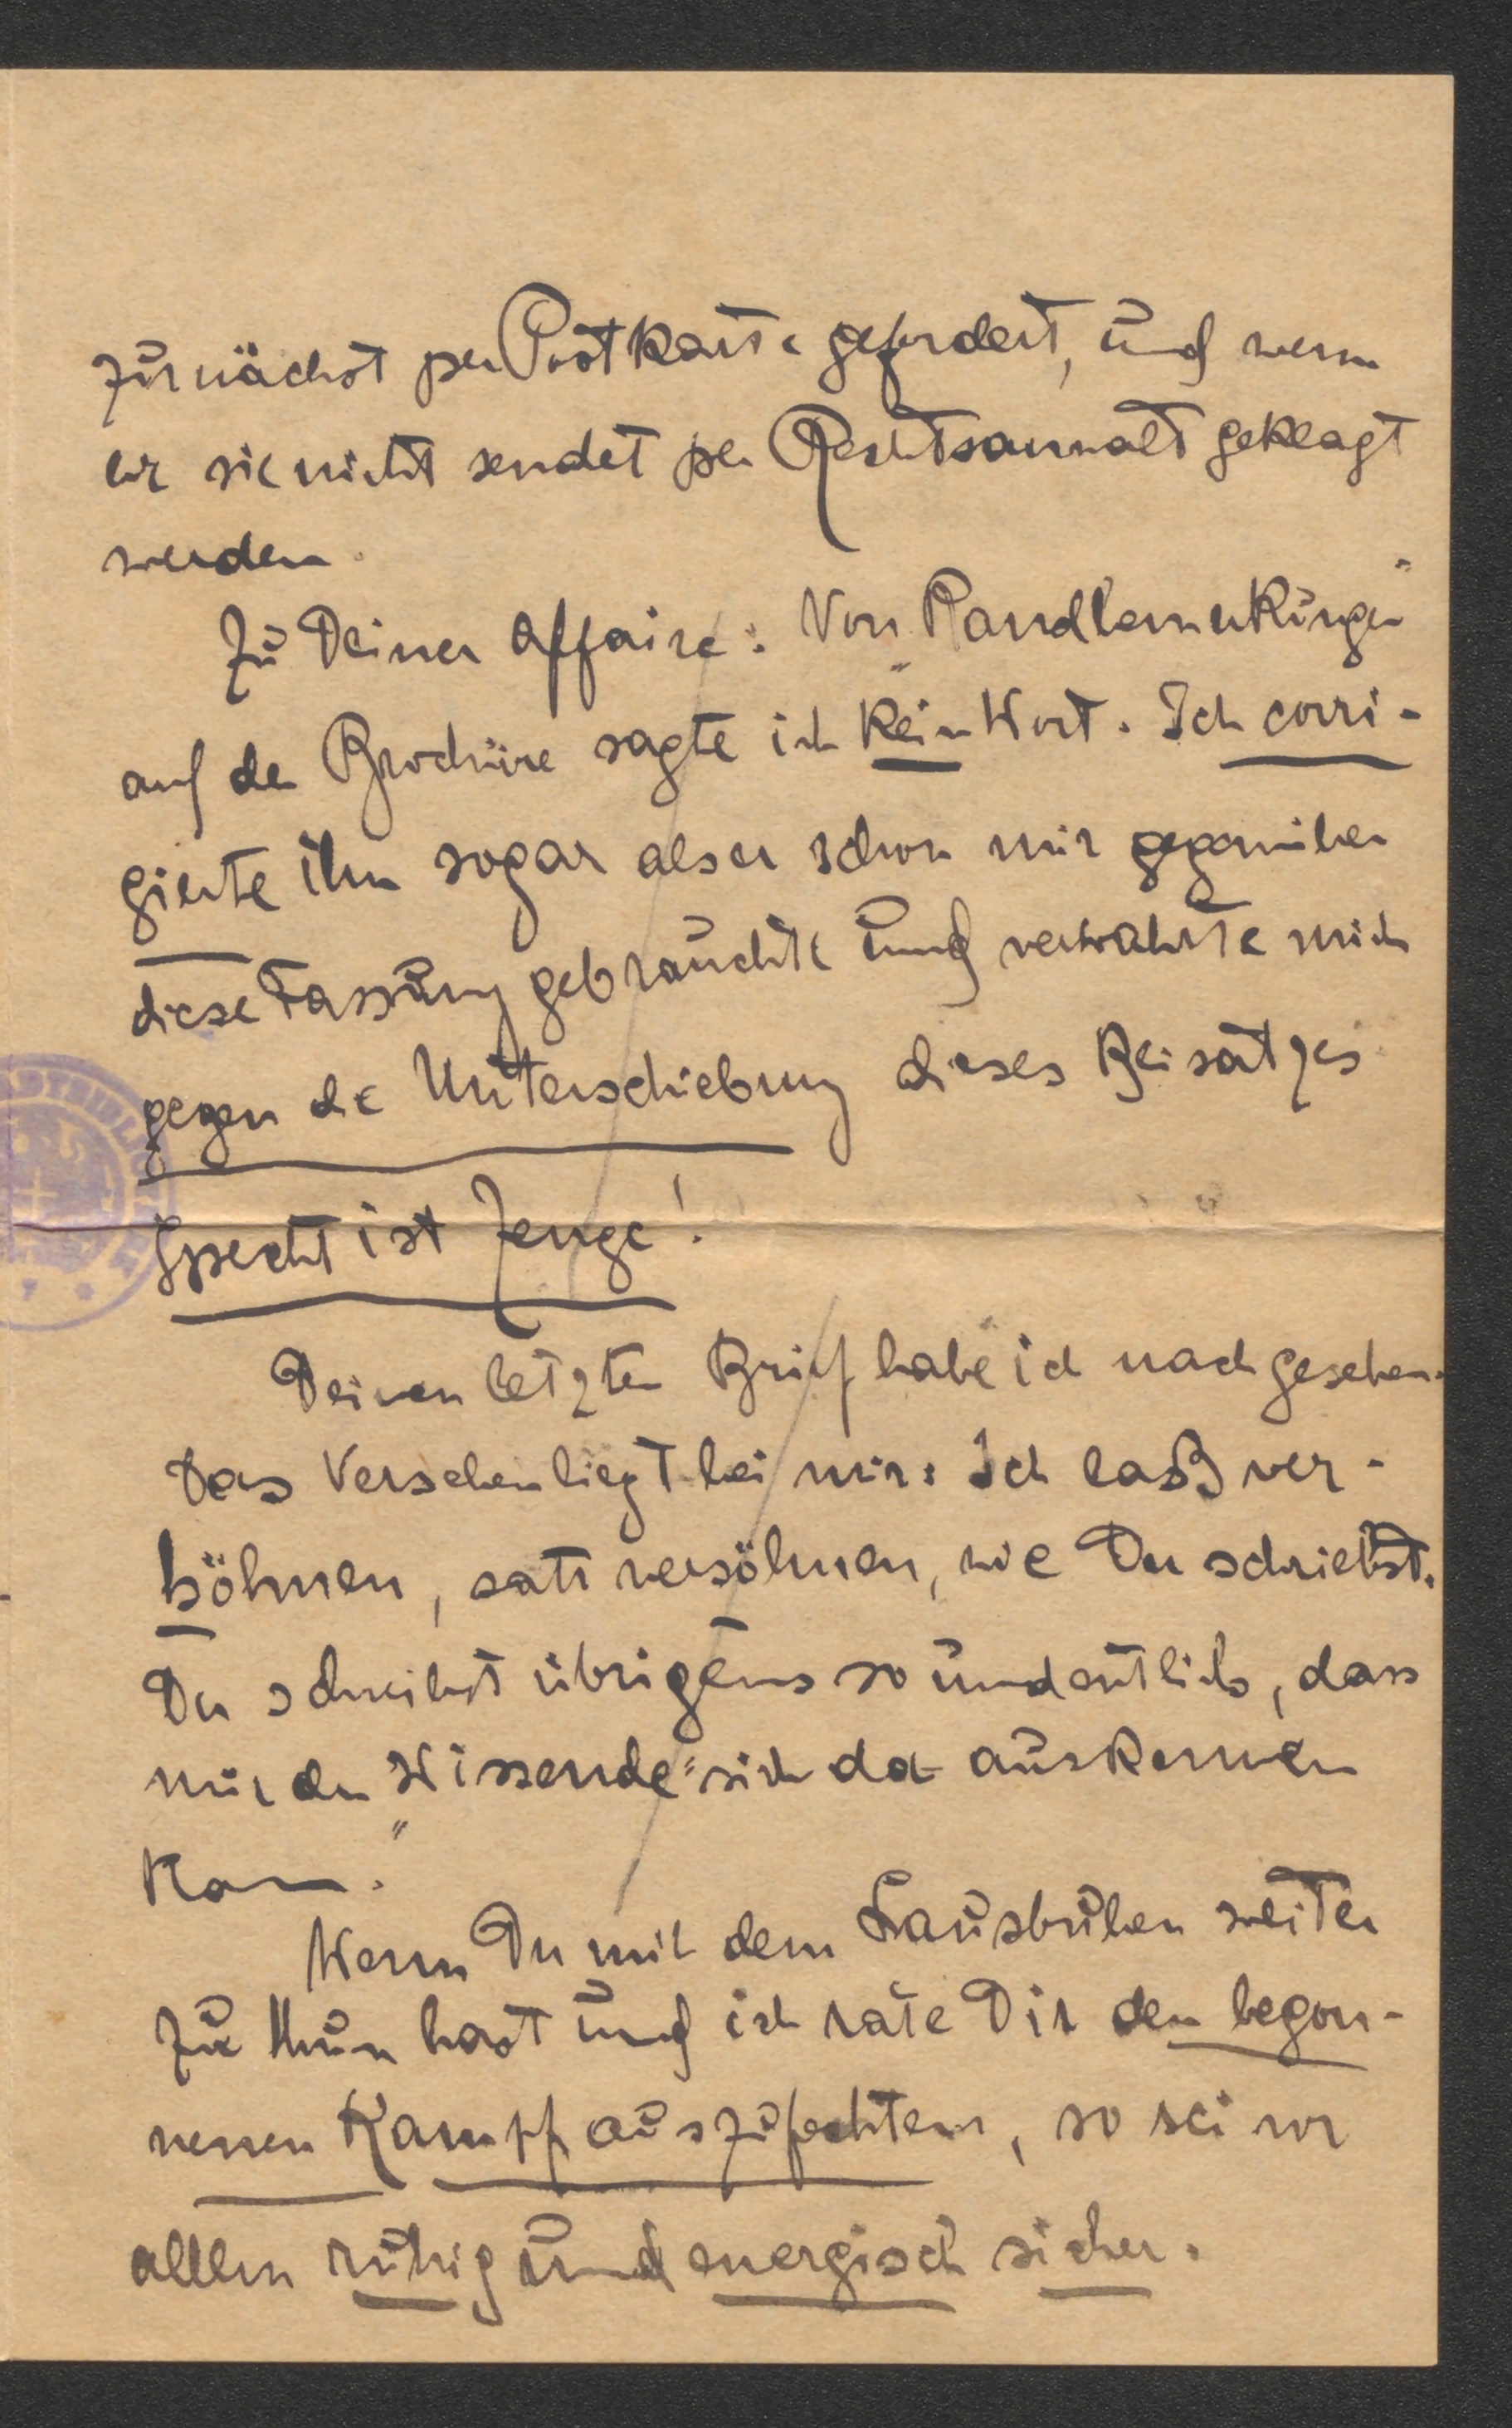 zunächst per Postkarte gefordert, und wenn
er sie nicht sendet per Rechtsanwalt geklagt
werden.
Zu Deiner Affaire: Von „Randbemerkungen“
auf der Brochüre sagte ich kein Wort. Ich corri-
gierte ihn sogar als er schon mir gegenüber
diese Fassung gebrauchte und verwahrte mich
gegen die Unterschiebung dieses Beisatzes
Specht ist Zeuge!
Deinen letzten Brief habe ich nachgesehen.
Das Versehen liegt bei mir: Ich laß ver-
höhnen, satt versöhnen, wie Du schriebst.
Du schreibst übrigens so undeutlich, dass
nur der „Wissende“ sich da auskennen
kann.
Wenn Du mit dem Lausbuben weiter
zu thun hast und ich rate Dir den begon-
nenen Kampf auszufechten, so sei vor
allem ruhig und energisch sicher.